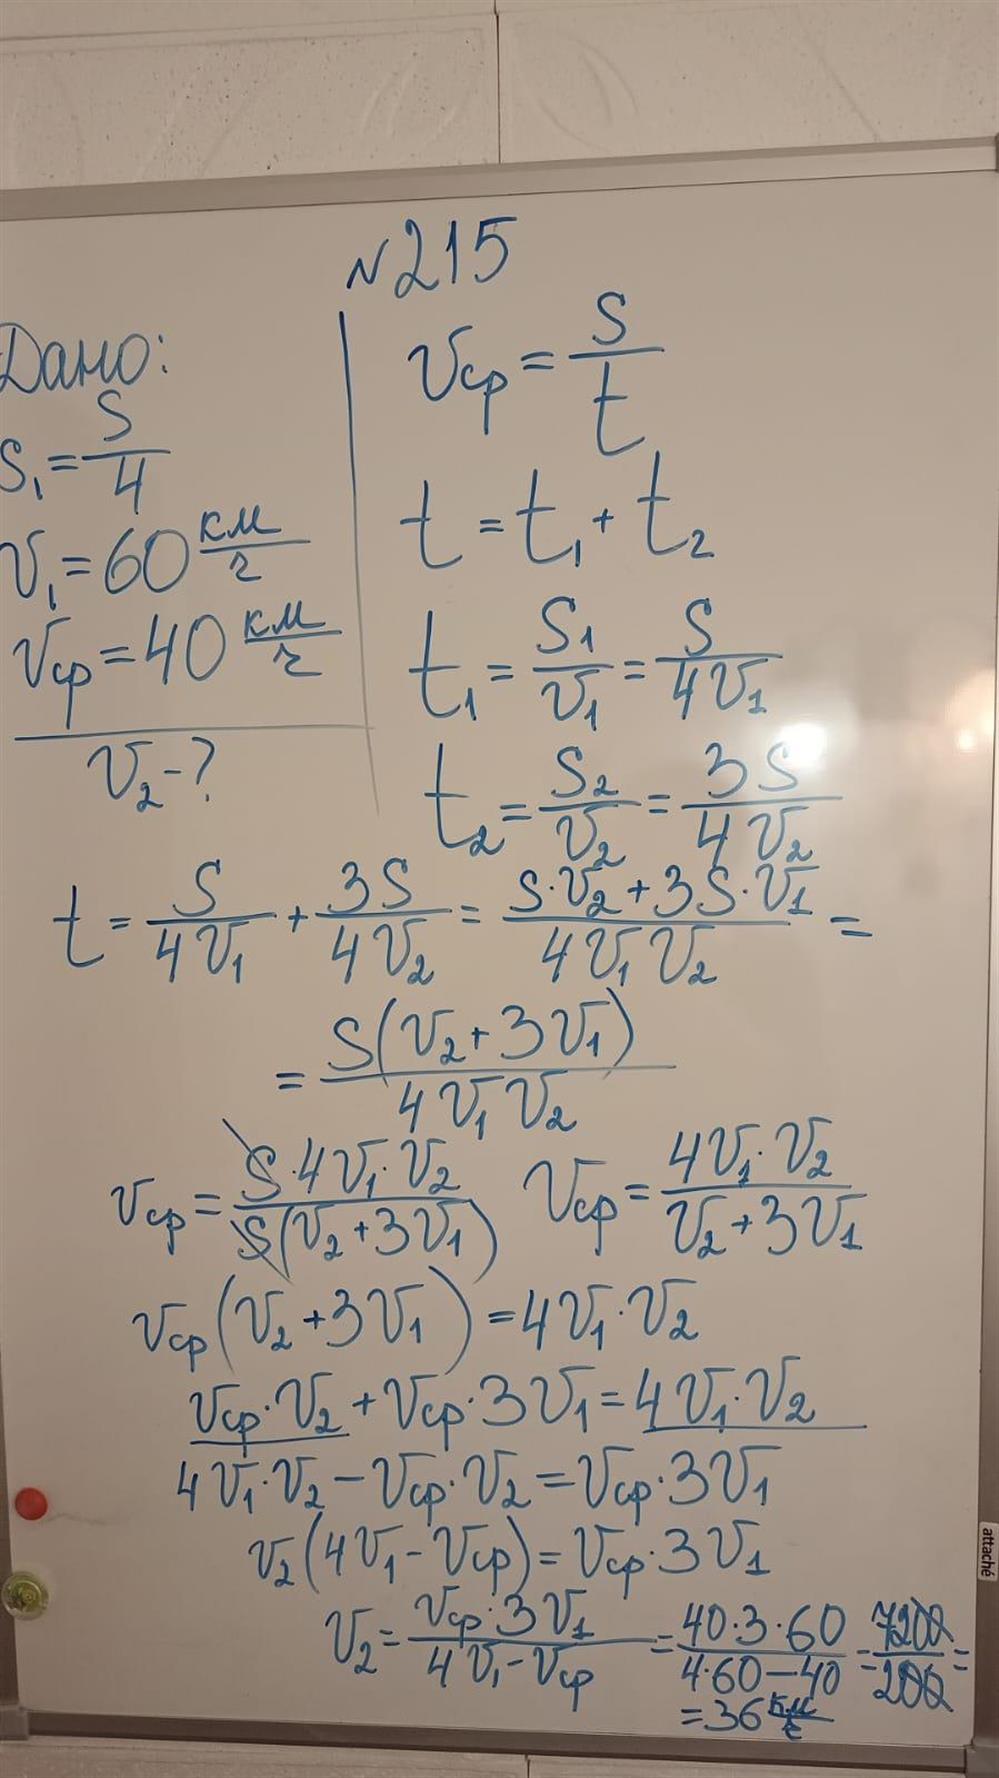 №215
Дано:
S₁ = S/4
V₁ = 60 км/г
Vср = 40 км/г
V₂ - ?
Vср = S/t
t = t₁ + t₂
t₁ = S₁/V₁ = S/4V₁
t₂ = S₂/V₂ = 3S/4V₂
t = S/4V₁ + 3S/4V₂ = S·V₂ + 3S·V₁/4V₁V₂ =
= S(V₂ + 3V₁)/4V₁V₂
Vср = S·4V₁·V₂/S(V₂ + 3V₁) Vср = 4V₁·V₂/V₂ + 3V₁
Vср(V₂ + 3V₁) = 4V₁·V₂
Vср·V₂ + Vср·3V₁ = 4V₁·V₂
4V₁·V₂ - Vср·V₂ = Vср·3V₁
V₂(4V₁ - Vср) = Vср·3V₁
V₂ = Vср·3V₁/4V₁ - Vср = 40·3·60/4·60 - 40 = 7200/200 =
= 36 км/г
attaché